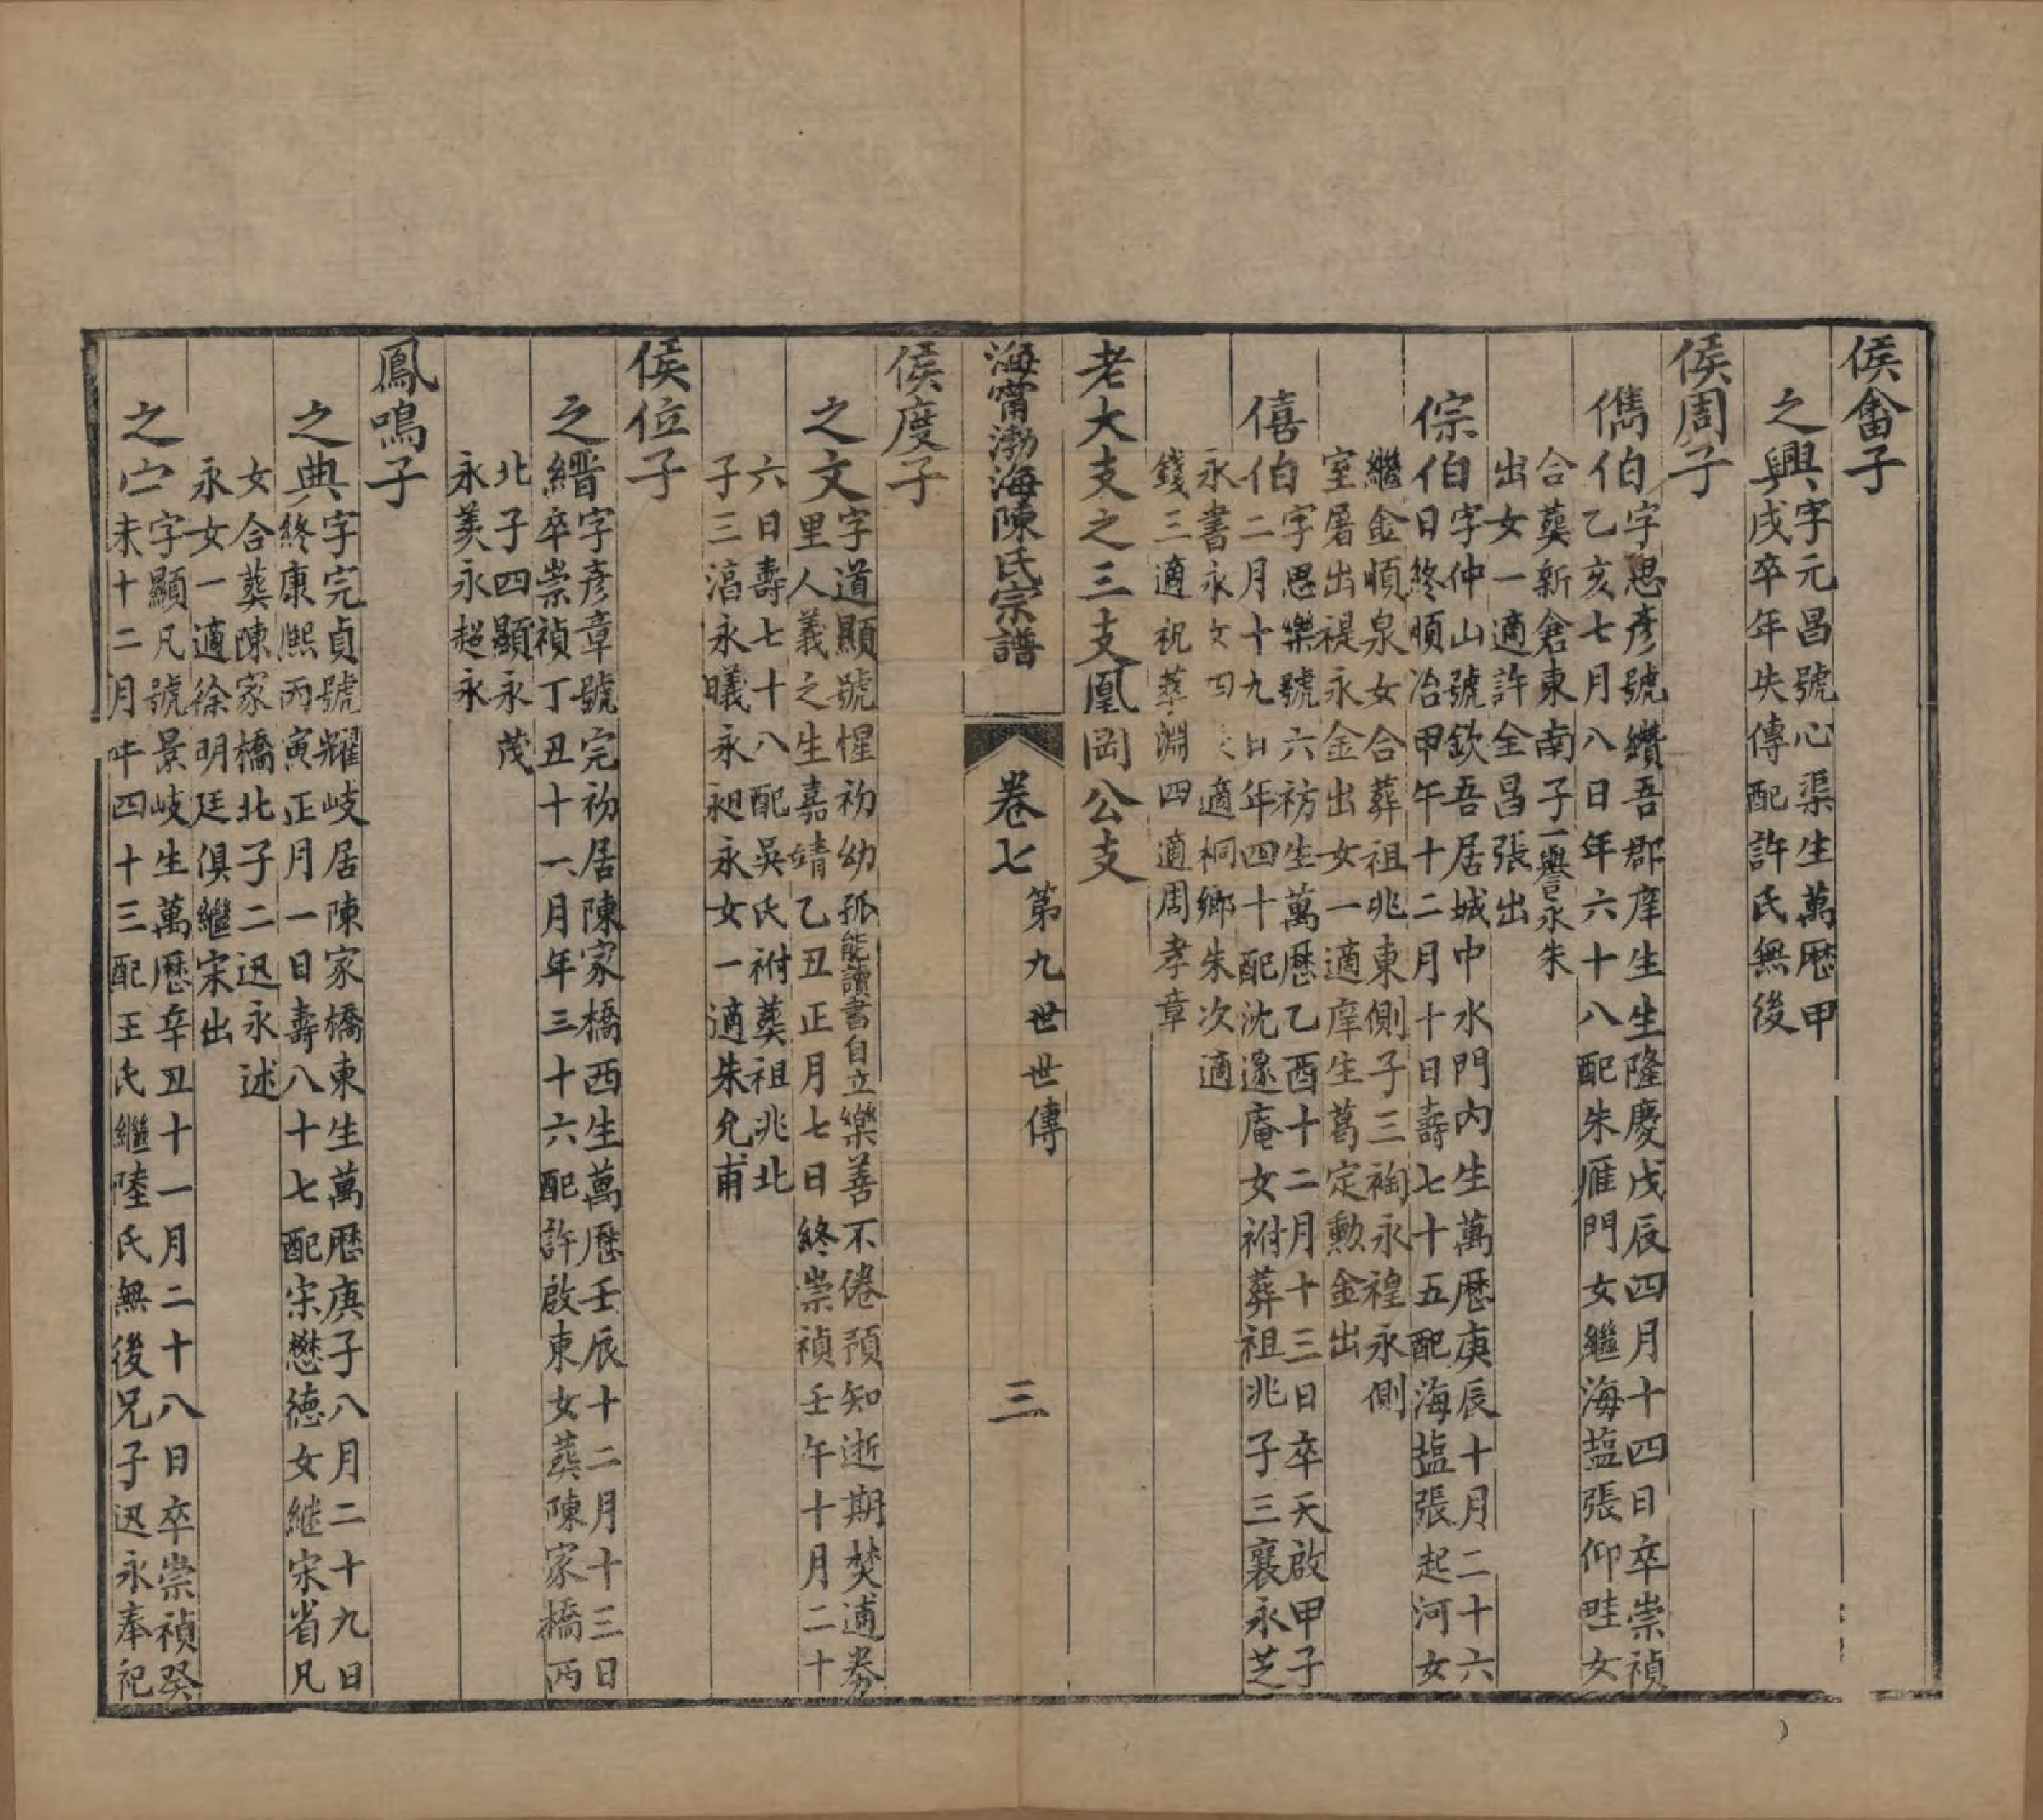 侯畬子
之興字元昌號心渠生萬厯甲
戌卒年失傳配許氏無後
侯周子
儁伯字思彥號纘吾郡庠生生隆慶戊辰四月十四日卒崇禎
乙亥七月八日年六十八配朱雁門女繼海塩張仰畦女
合葬新倉東南子二譽永朱
出女一適許全昌張出
倧伯字仲山號欽吾居城中水門內生萬厯庚辰十月二十六
日終順治甲午十二月十日壽七十五配海塩張起河女
繼金順泉女合葬祖兆東側子三裪永禋永側
室屠出禔永金出女一適庠生葛定勳金出
僖伯字思樂號六祊生萬厯乙酉十二月十三日卒天啟甲子
二月十九日年四十配沈邃庵女祔葬祖兆子三襄永芝
永書永女四 適桐鄉朱次適
錢三適祝萃淵四適周孝章
老大支之三支凰岡公支
海甯渤海陳氏宗譜
卷七
第九世世傳
三
侯度子
之文字道顯號惺初幼孤能讀書自立樂善不倦預知逝期焚逋券
里人義之生嘉靖乙丑正月七日終崇禎壬午十月二十
六日壽七十八配吳氏祔葬祖兆北
子三滈永曦永昶永女一適朱允甫
侯位子
之縉字彥章號完初居陳家橋西生萬厯壬辰十二月十三日
卒崇禎丁丑十一月年三十六配許啟東女葬陳家橋西
北子四顯永茂
永美永超永
鳳鳴子
之典字完貞號耀岐居陳家橋東生萬厯庚子八月二十九日
終康熙丙寅正月一日壽八十七配宋懋德女継宋省凡
女合葬陳家橋北子二迅永述
永女一適徐明廷俱繼宋出
之字顯凡號景岐生萬厯辛丑十一月二十八日卒崇禎癸
未十二月年四十三配王氏繼陸氏無後兄子迅永奉祀